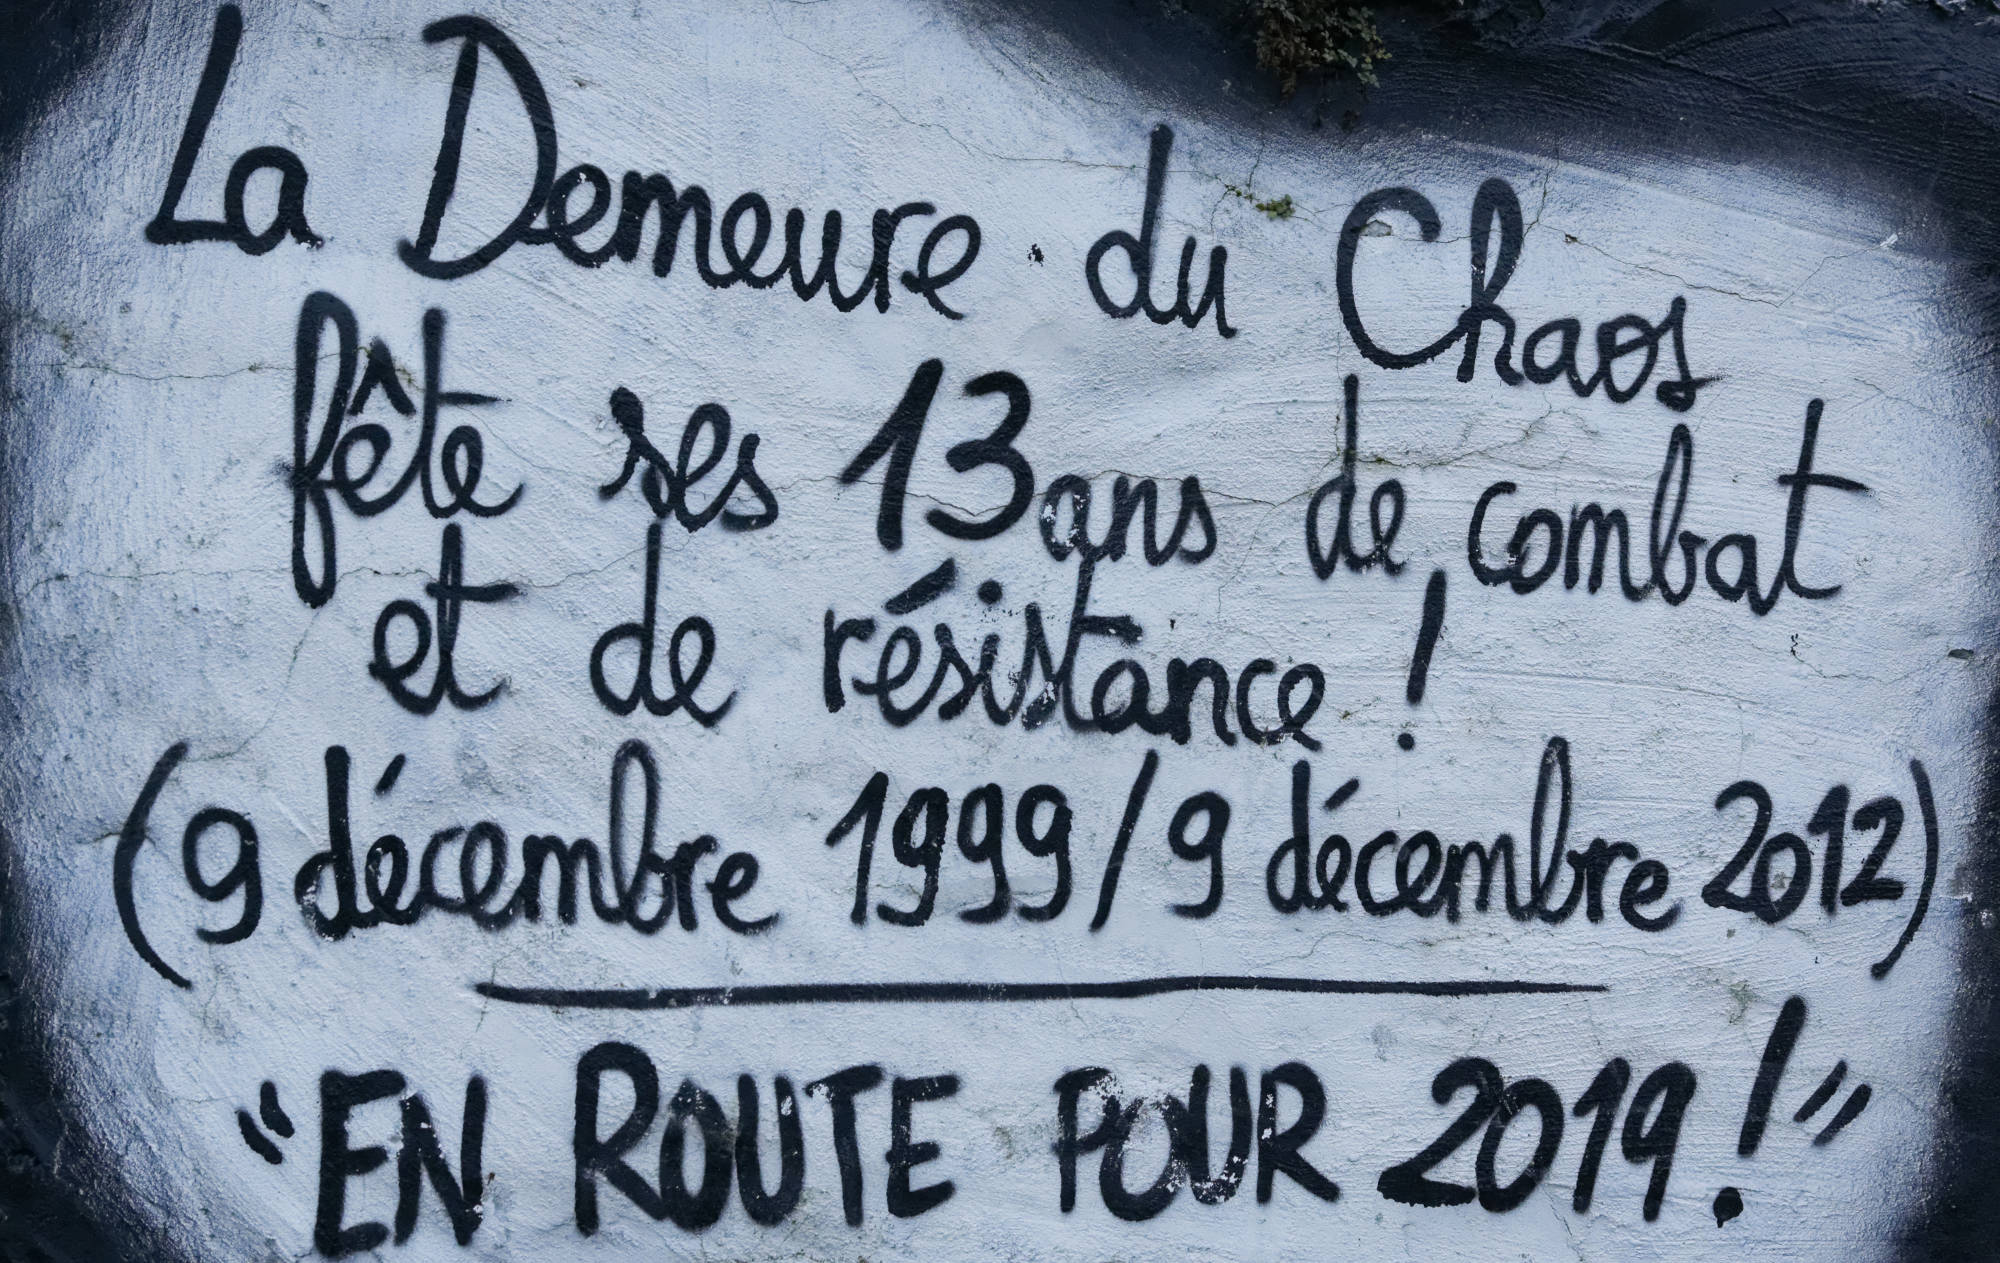 La Demeure du Chaos
fête ses 13 ans de combat
et de résistance !
(9 décembre 1999 / 9 décembre 2012)
"EN ROUTE POUR 2019 !"